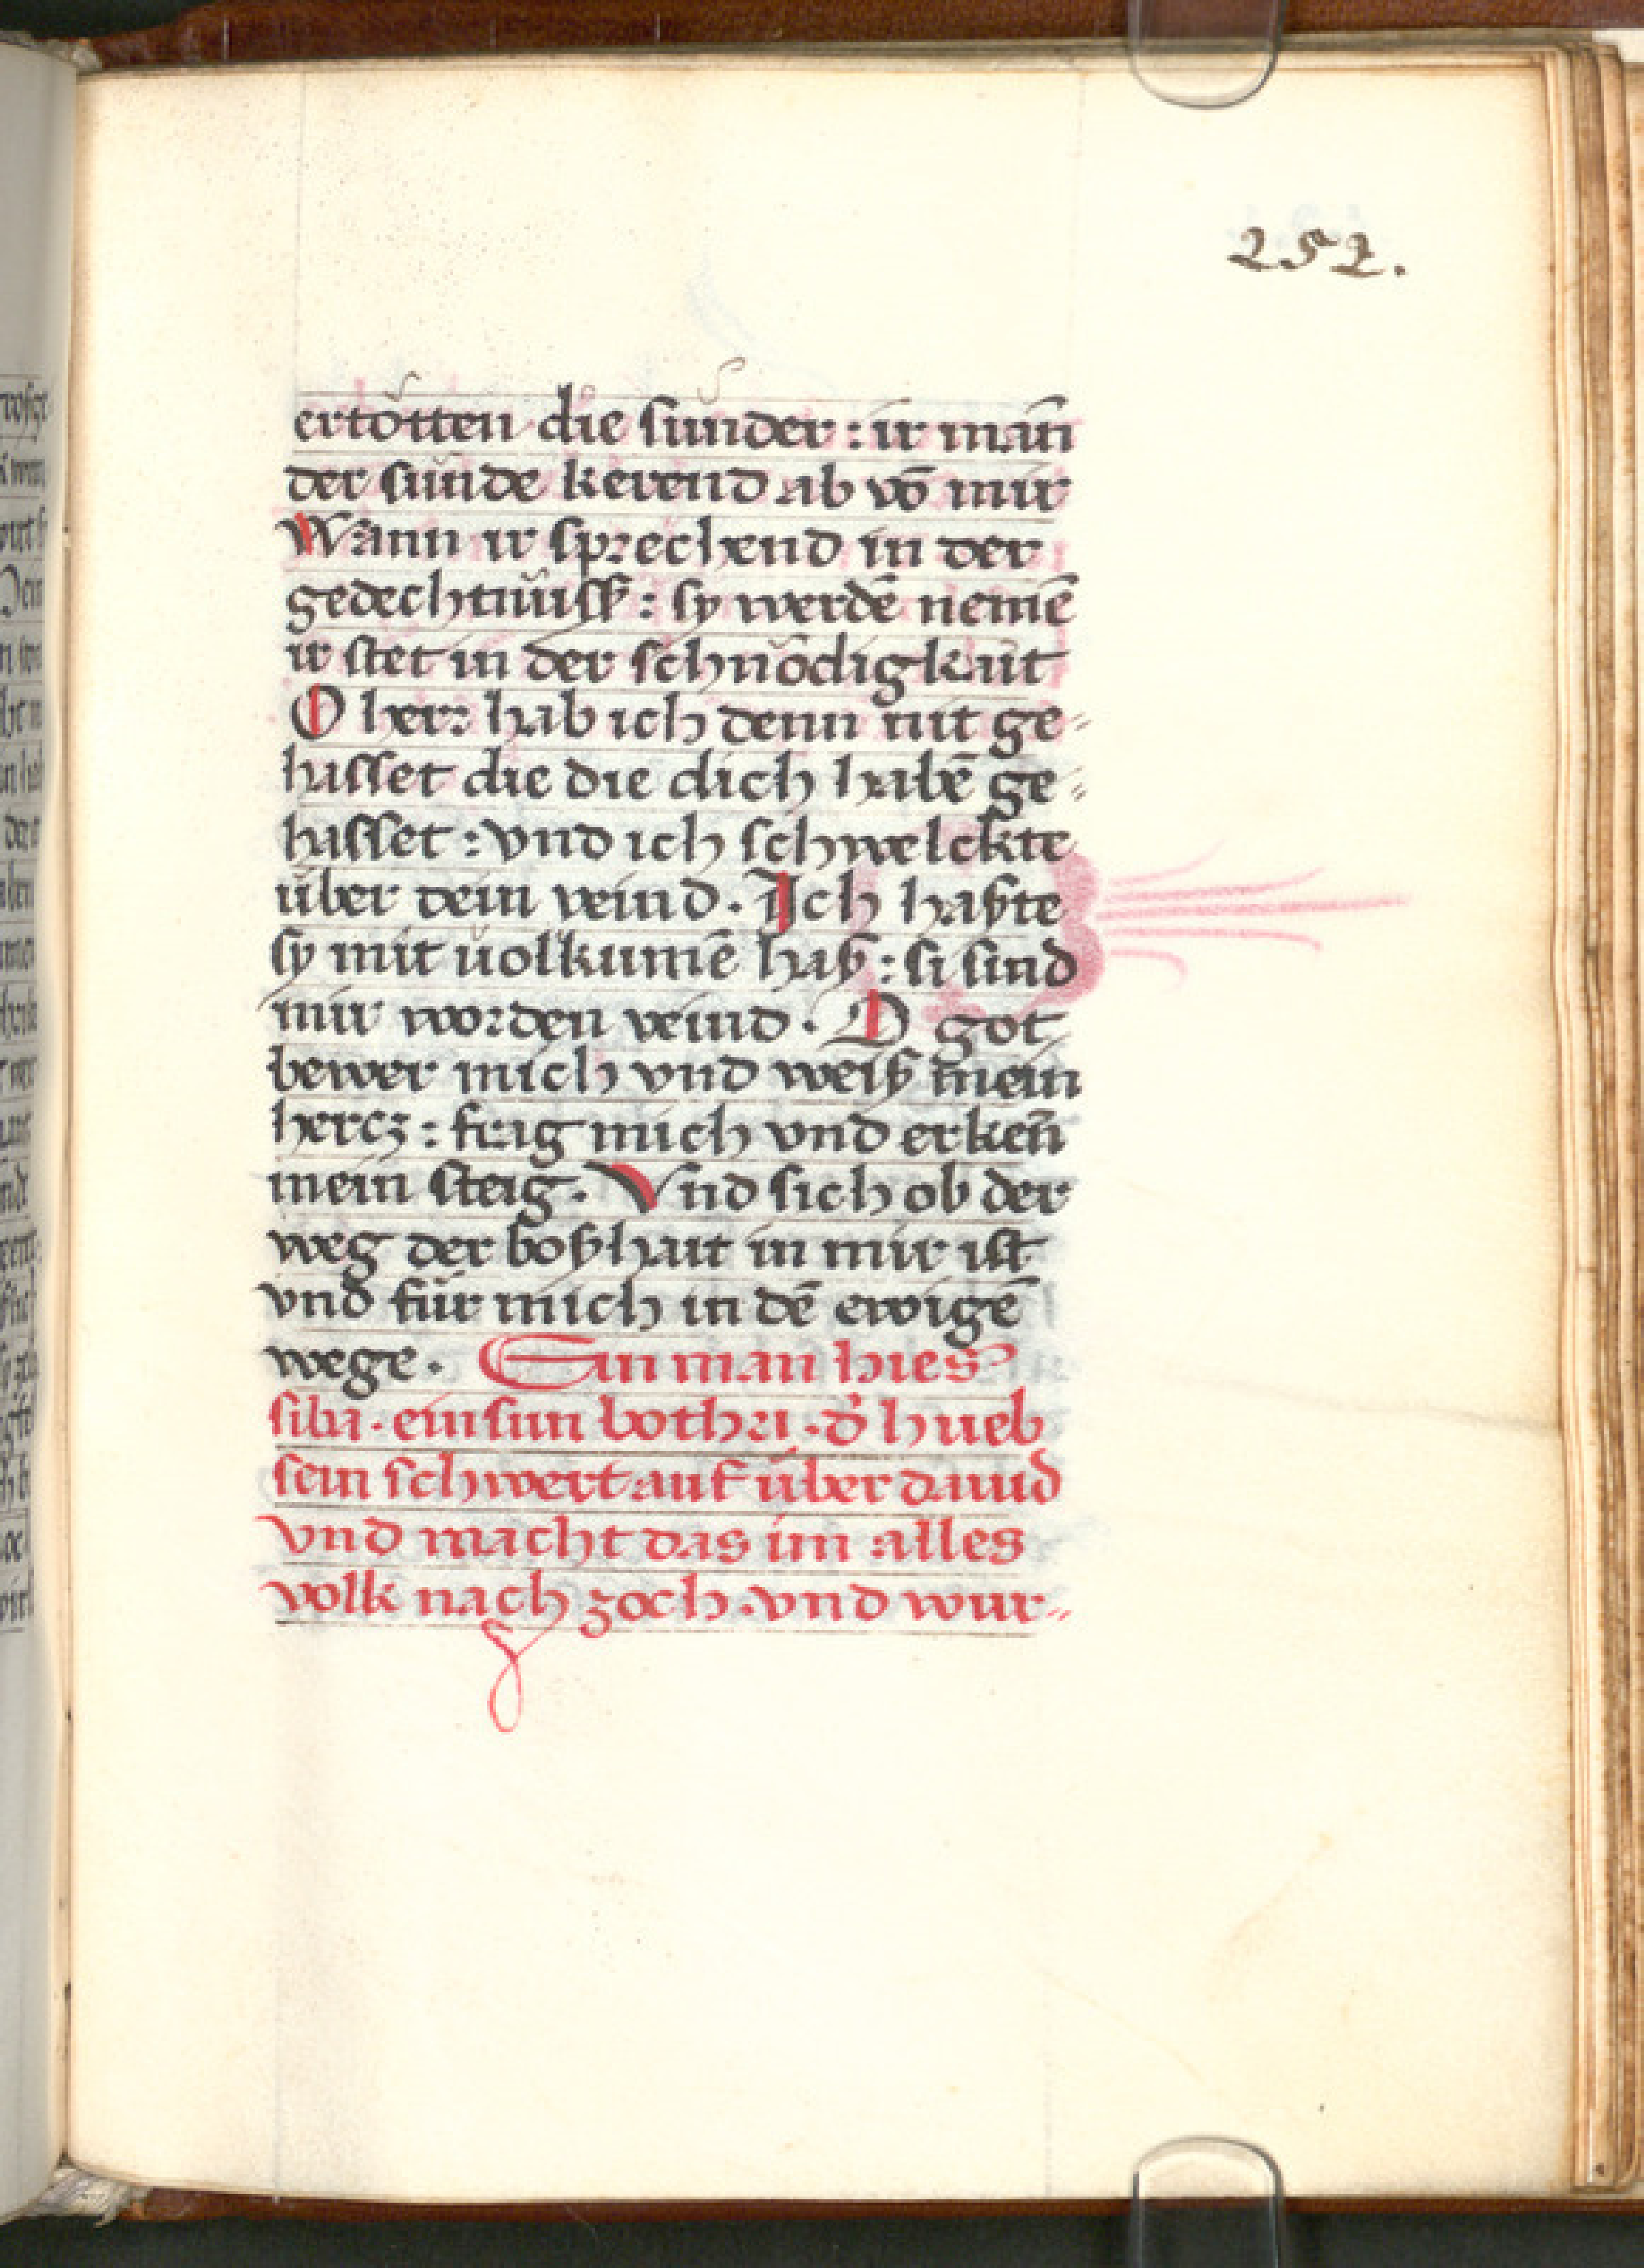 252.
ertötten die sünder : ir mañ
der sünde kerend ab vō mir
Wann ir sprechend in der
gedechtnüsß : sy werdē nemē
ir stet in der schnödigkait
O herr hab ich denn nit ge⸗
hasset die die dich habē ge⸗
hasset : vnd ich schwelckte
über dein veind. Ich haßte
sy mit uolkumē haß : si sind
mir worden veind. O got
bewer mich vnd weiß mein
hercz : frag mich vnd erkeñ
mein steig. Vnd sich ob der
weg der boßhait in mir ist
vnd für mich in dē ewigē
wege. Ein man hies
siba. ein sun bothri. d' hueb
sein schwert auf über dauid
vnd macht das im alles
volk nach zoch. vnd wur⸗